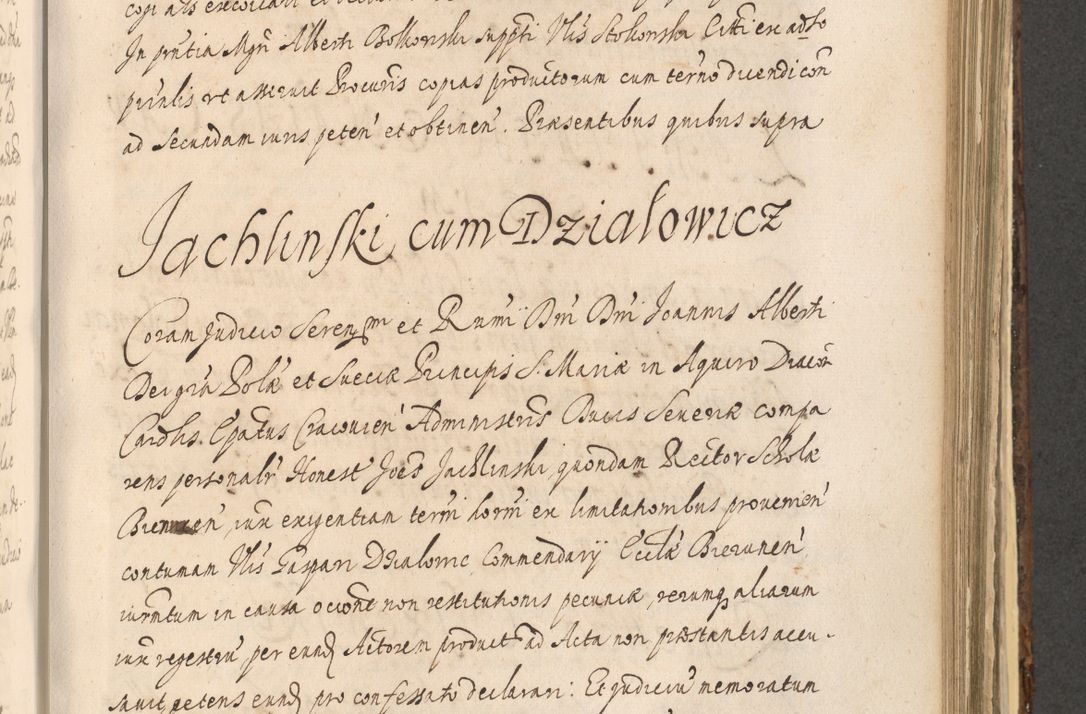 In pntia Mgri Alberti Bolkonski suppti Nlis Stokonska Citti ex adso
prinlis ut asseruit Procuris copias productorum cum termo dicendi con
ad Secundam iuris peten' et obtinen'. Præsentibus quibus supra
Jachlinski cum Działowicz
Coram Judicio Seren^m et Rnmi Dni Dni Joannis Alberti
Dei gra Polæ et Sueciæ Principis S. Mariæ in Aquiro Diacon
Cardlis Epatus Cracouien' Administris Ducis Seueriæ compa
rens personalr Honest' Joes Jachlinski quondam Rector Scholæ
Bierunen' iux exigentiam termi horni ex limitationibus prouenien'
contumam Nlis Gaspari Dzialowic Commendarij Ecclæ Bierunen'
iurmtum in causa ocione non restitutionis pecuniæ, rerumq aliarum
iux regestru' per eund Actorem product' ad Acta non præstantis accu-
sauit petens eund pro confessato declarari: Et judiciu' memoratum